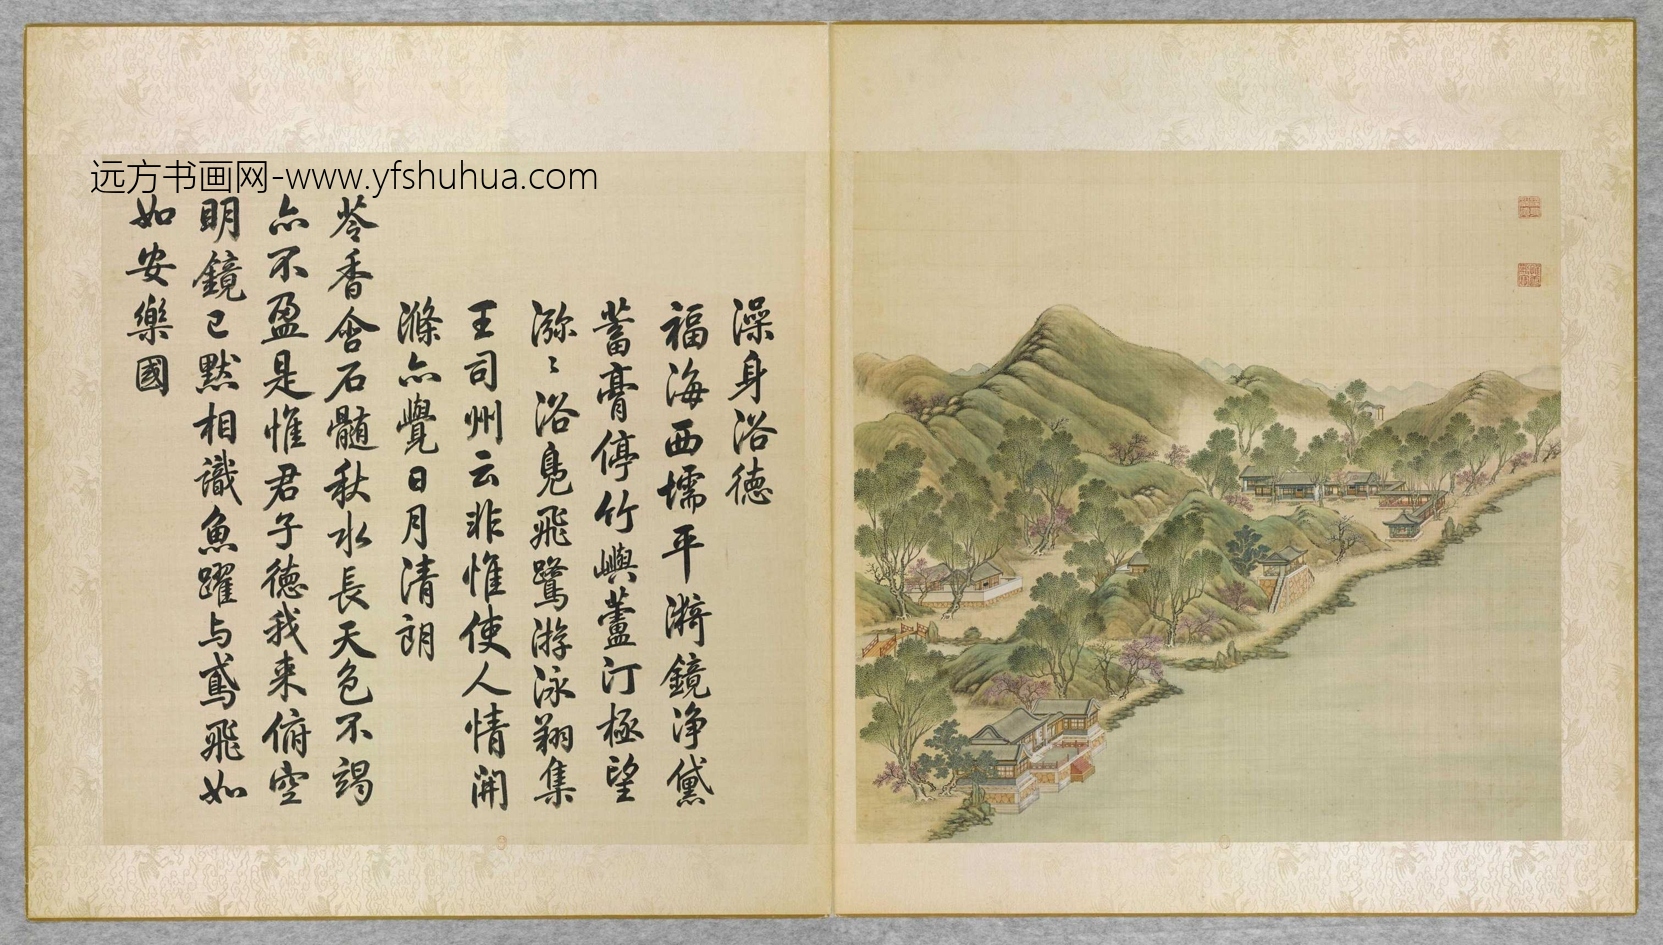 远方书画网-www.yfshuhua.com
澡身浴德
福海西壖平漪鏡浄黛
蓄膏停竹嶼蘆汀極望
瀰〻浴鳧飛鷺游泳翔集
王司州云非惟使人情開
滌亦覺日月清朗
苓香含石髓秋水長天色不竭
亦不盈是惟君子德我来俯空
明鏡已默相識魚躍与鳶飛如
如安樂國